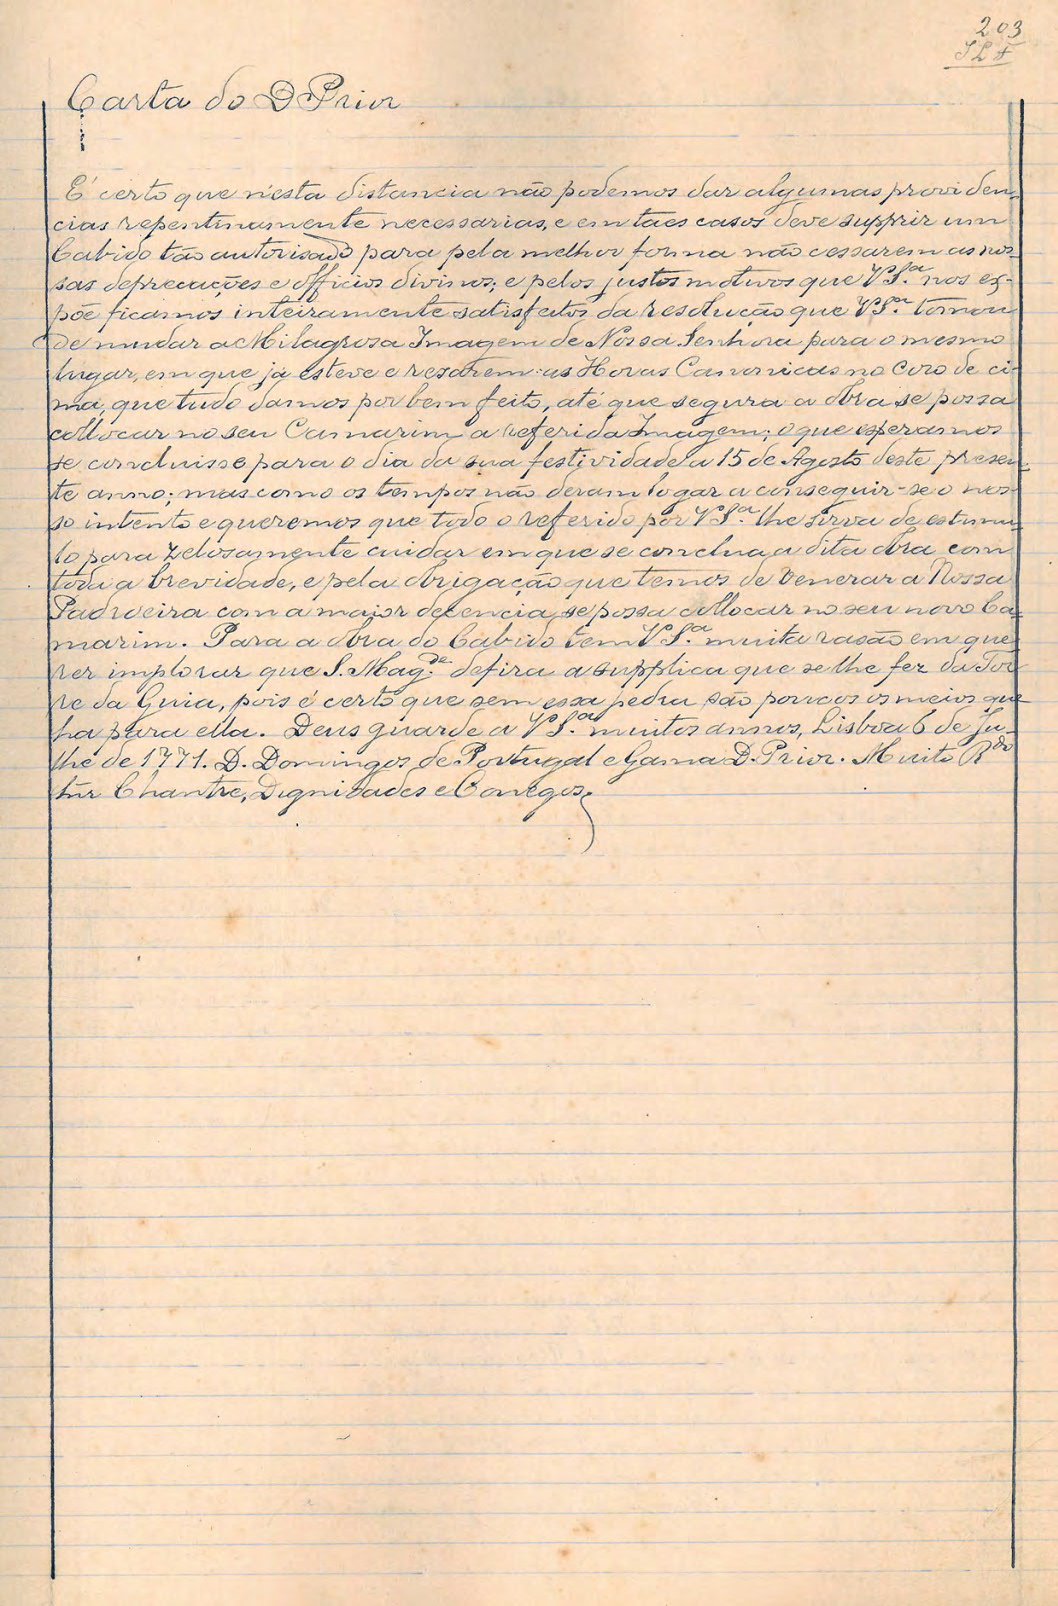 203
Carta do D Prior
É certo que n'esta distancia não podemos dar algumas providen-
cias repentinamente necessarias, e em taes casos deve supprir um
Cabido tão autorisado para pela melhor forma não cessarem as nos-
sas deprecações e officios divinos; e pelos justos motivos que V Sª. nos ex-
põe ficamos inteiramente satisfeitos da resolução que V Sª. tomou
de mudar a Milagrosa Imagem de Nossa Senhora para o mesmo
lugar, em que já esteve e resarem as Horas Canonicas no Coro de ci-
ma, que tudo damos por bem feito, até que segura a obra se possa
collocar no seu Camarim a referida Imagem; o que esperamos
se concluisse para o dia da sua festividade a 15 de Agosto deste presen-
te anno; mas como os tempos não deram logar a conseguir-se o nos-
so intento e queremos que todo o referido por V Sª. lhe sirva de estimu-
lo para zelosamente cuidar em que se conclua a dita obra com
toda a brevidade, e pela obrigação que temos de venerar a Nossa
Padroeira com a maior decencia, se possa collocar no seu novo Ca-
marim. Para a obra do Cabido tem V Sª. muita rasão em que-
rer implorar que S. Magde. defira a supplica que se lhe fez da Tor-
re da Guia, pois é certo que sem essa pedra são poucos os meios que
ha para ella. Deus guarde a V Sª. muitos annos, Lisboa 6 de Ju-
lho de 1771. D. Domingos de Portugal e Gama D. Prior. Muito Rdo
Snr Chantre, Dignidades e Conegos